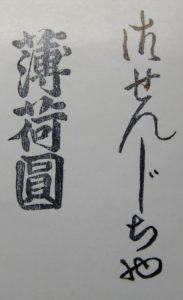 御せんじちや
薄荷圓